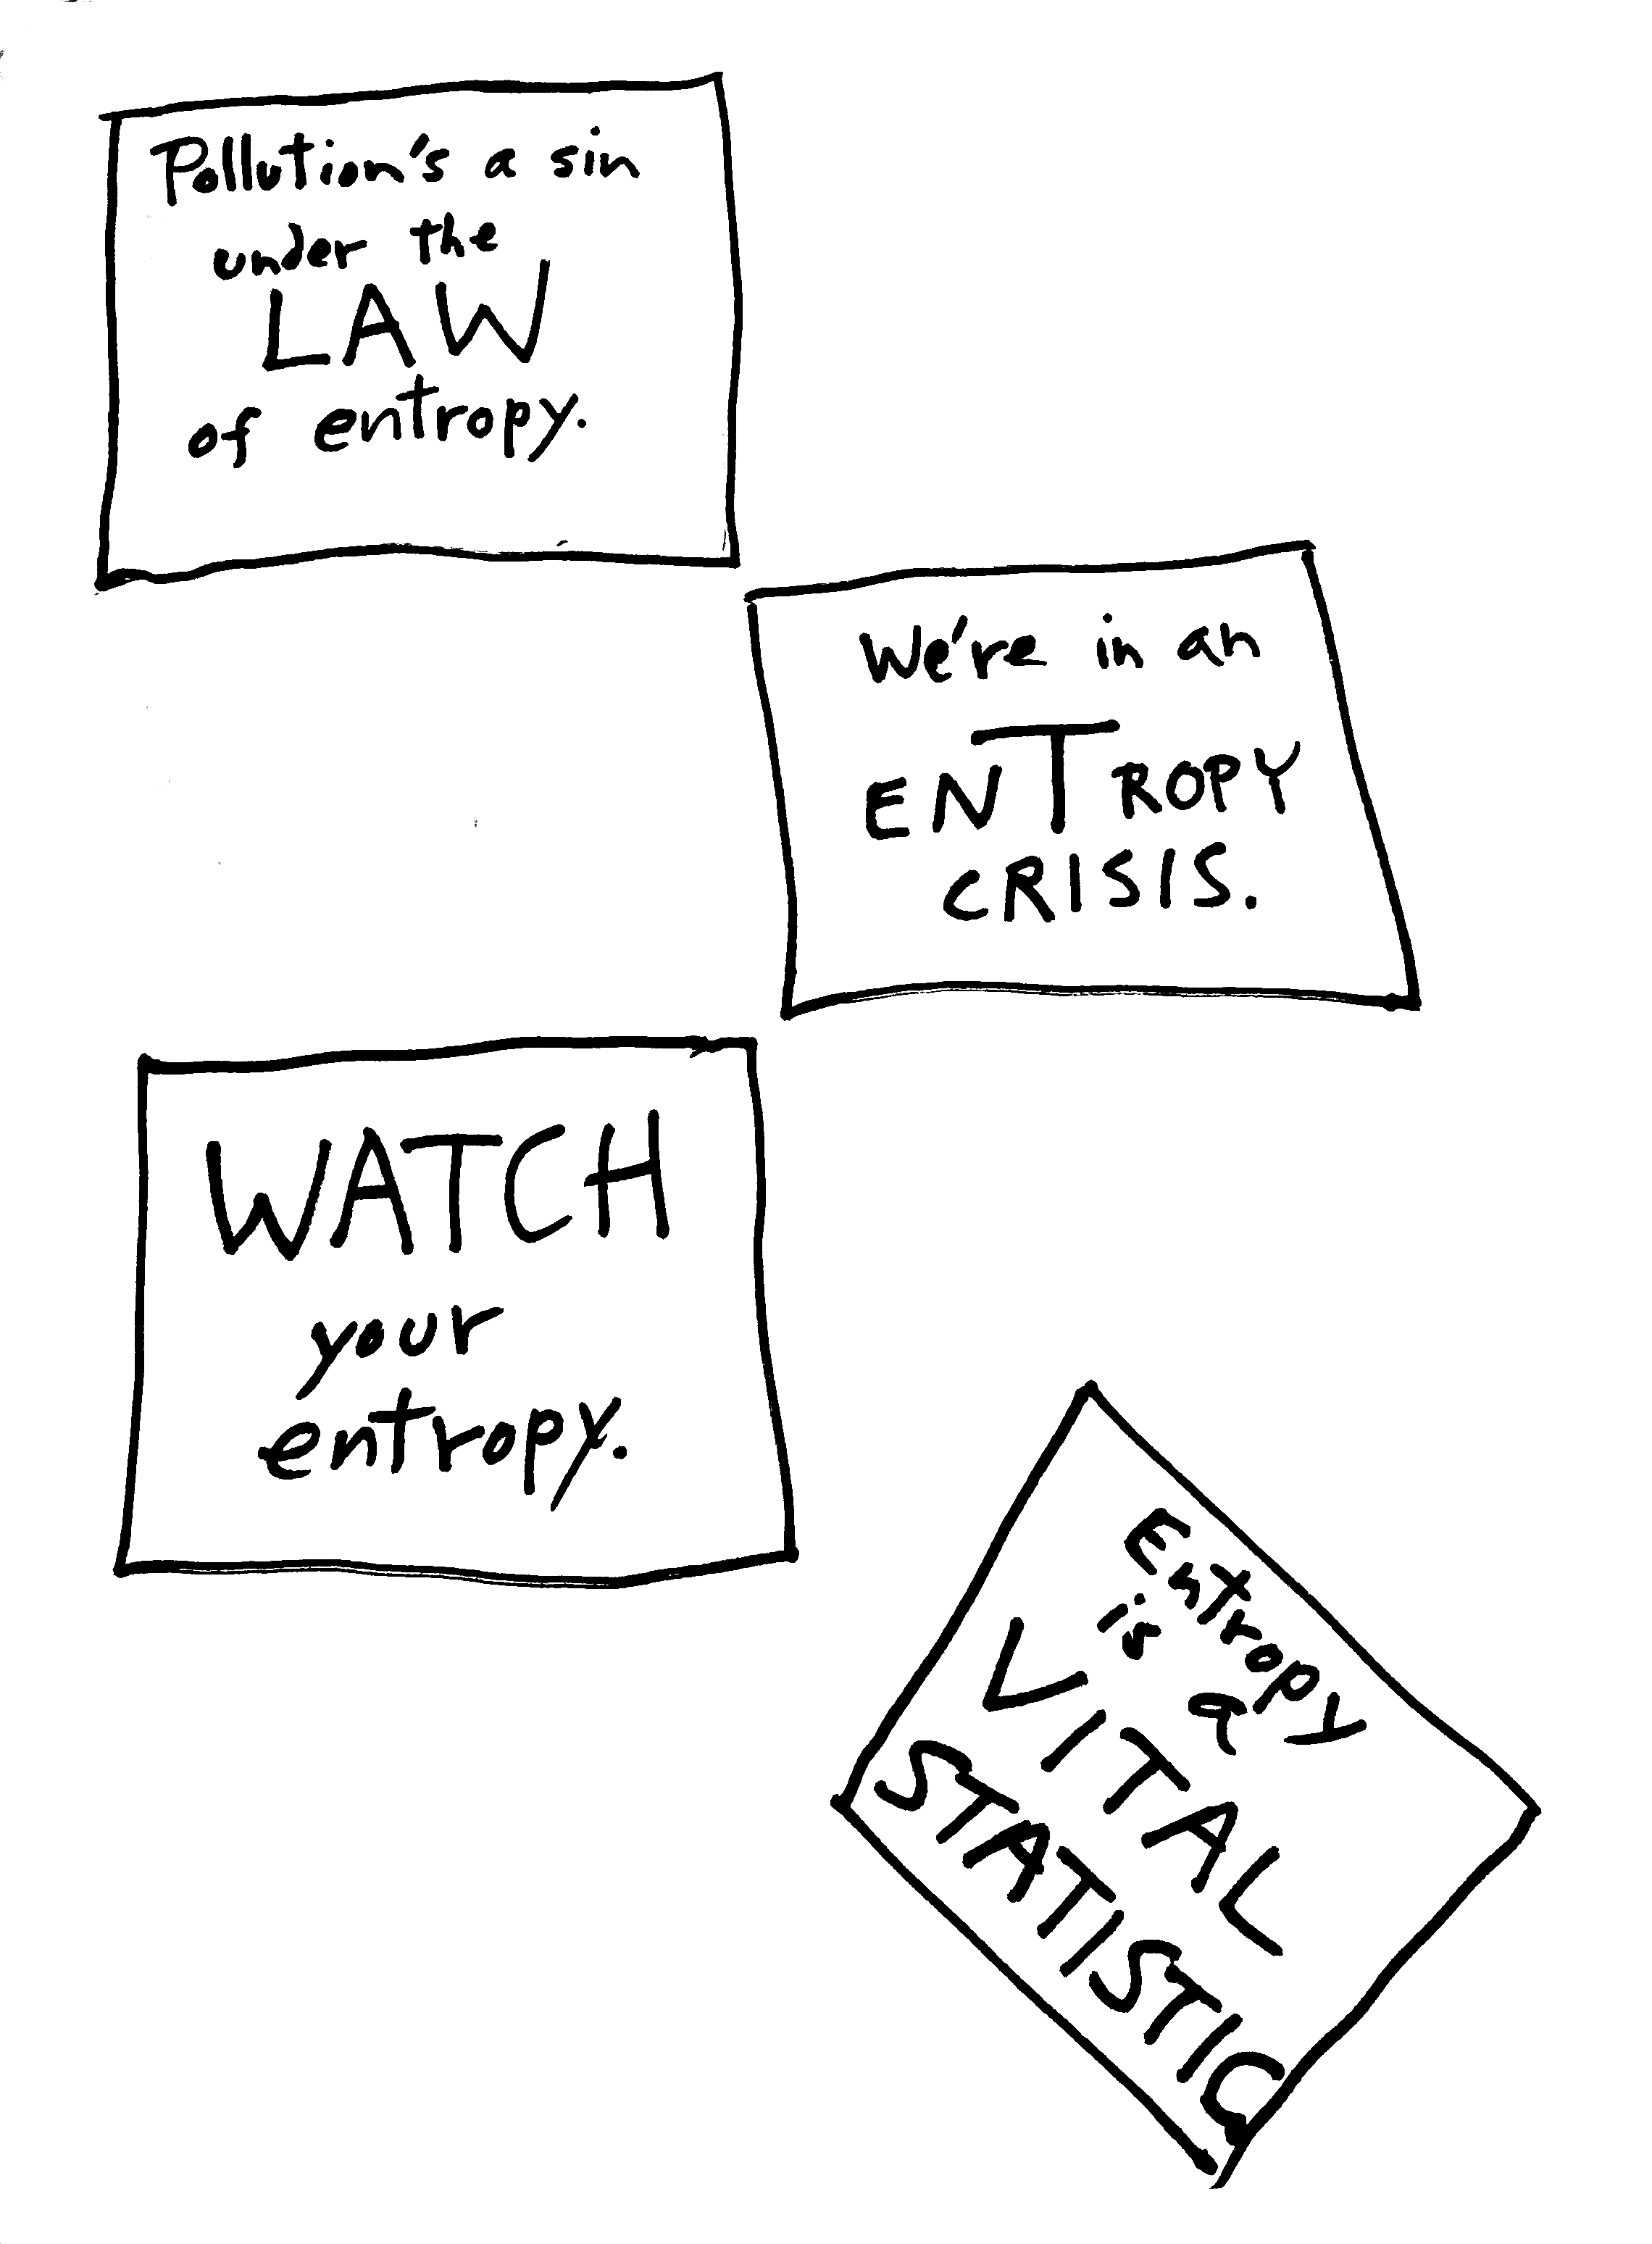 Pollution's a sin
under the
LAW
of entropy.
We're in an
ENTROPY
CRISIS.
WATCH
your
entropy.
Entropy
is a
VITAL
STATISTIC